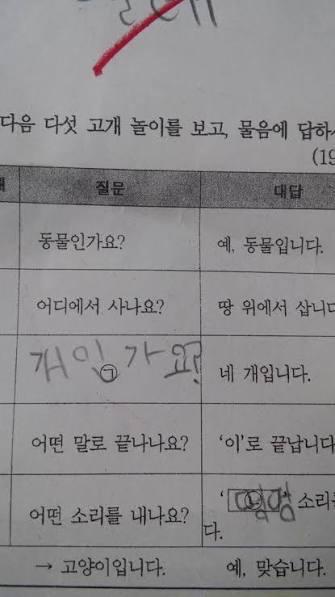 다음 다섯 고개 놀이를 보고, 물음에 답하
(19
질문 대답
동물인가요? 예, 동물입니다.
어디에서 사나요? 땅 위에서 삽니다
개인가요? 네 개입니다.
㉠
어떤 말로 끝나나요? '이'로 끝납니다
어떤 소리를 내나요? ' ㉡ 소리를
다.
→ 고양이입니다. 예, 맞습니다.